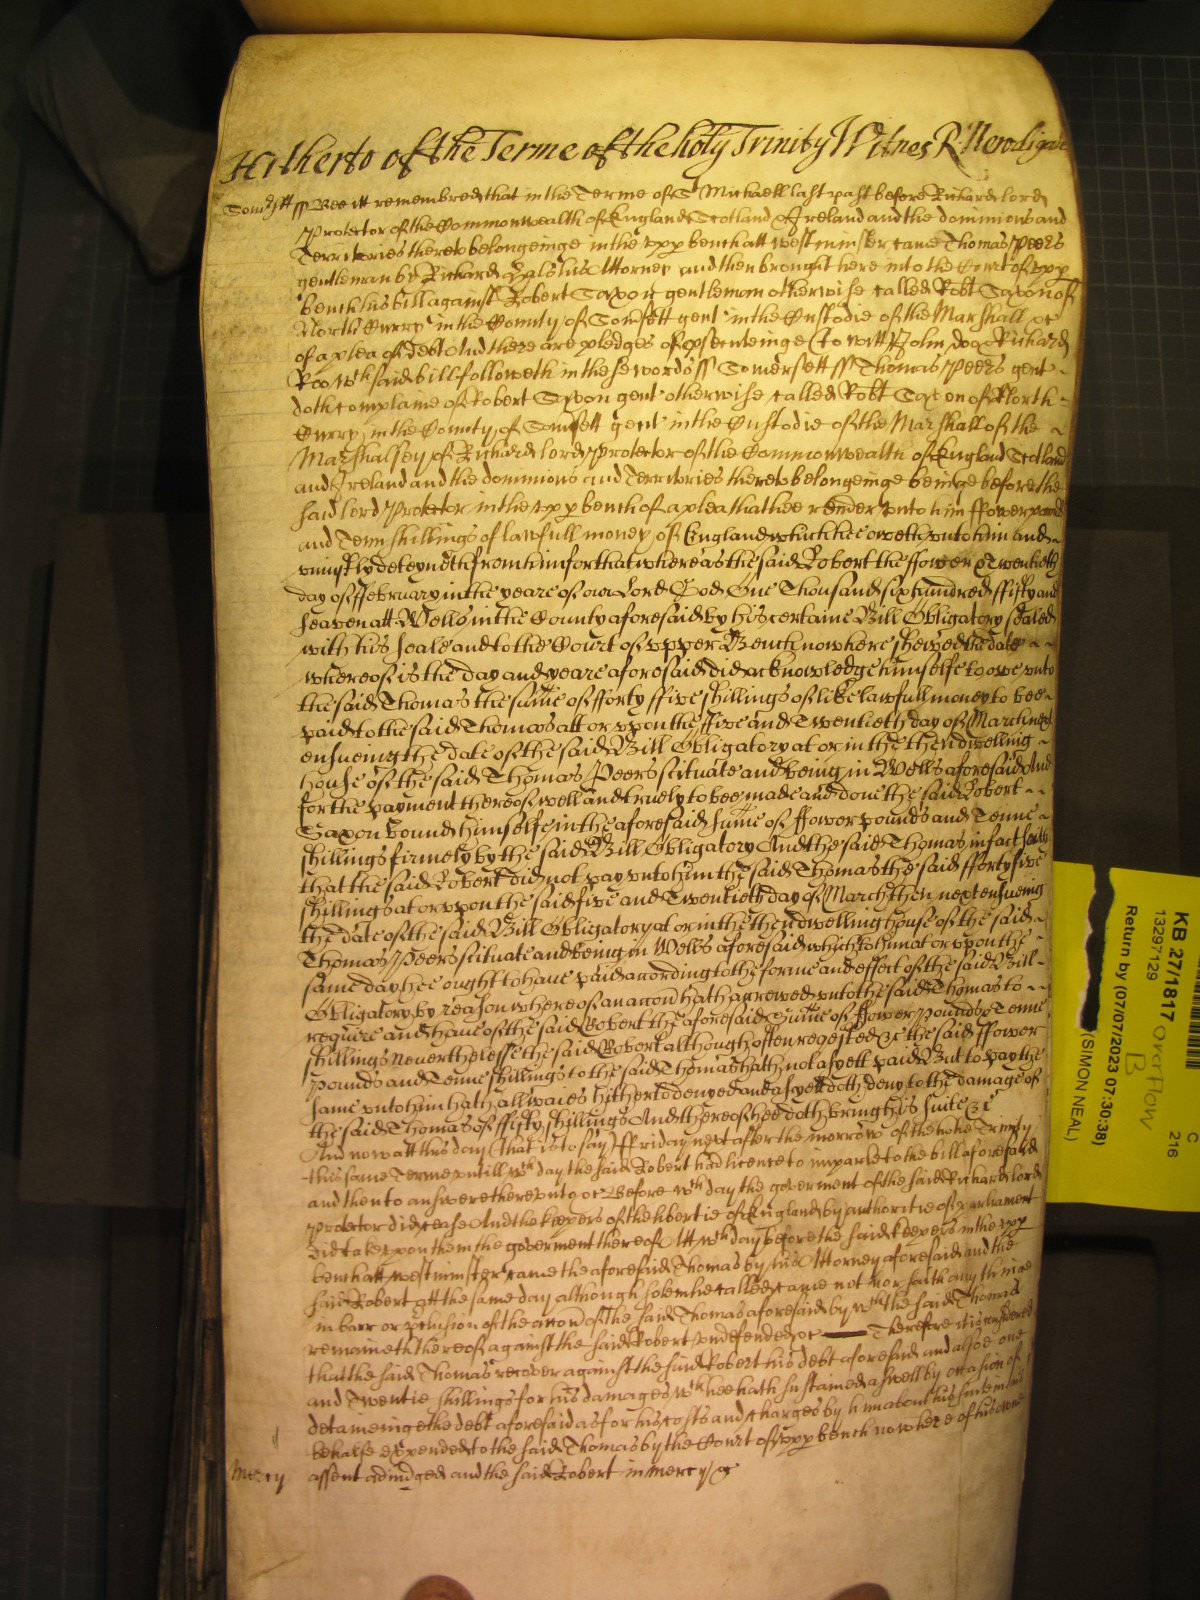 Hitherto of the Terme of the holy Trinity Witnes R: Newdigate
Som̃sett ss Bee itt remembred that in the Terme of St Michaell last past before Richard lord
Protector of the Commonwealth of England Scotland & Ireland and the dominions and
Territories thereto belongeinge in the vpp bench att westminster came Thomas Peers
gentleman by Richard his Attorney and then brought here into the Court of vpp
bench his bill against Robert Saxon gentleman otherwise called Robt Saxon of
North Curry in the County of Som̃sett gent in the Custodie of the Marshall &c
of a plea of debt And there are pledges of p̱secuteinge (to witt) John doo & Richard
Roo wch said bill followeth in these words ss Somersett ss Thomas Peers gent
doth complaine of Robert Saxon gent otherwise called Robt Saxon of North
Curry in the County of Som̃sett gent in the Custodie of the Marshall of the
Marshalsey of Richard lord Protector of the Commonwealth of England Scotland
and Ireland and the dominions and Territories thereto belongeinge beinge before the
said lord Protector in the vpp bench of a plea that hee render vnto him ffower pound
and Tenn shillings of lawfull money of England which hee oweth vnto him and
vniustly deteyneth from him for that whereas the said Robert the ffower & Twentieth
day of ffebruary in the yeare of our Lord God One Thousand six hundred ffifty and
seaven att Wells in the County aforesaid by his certaine Bill Obligatory sealed
with his seale and to the Court of vpper Bench now here shewed the date
whereof is the day and yeare aforesaid did acknowledge himselfe to owe vnto
the said Thomas the sum̃e of fforty ffive shillings of like lawfull money to bee
paid to the said Thomas att or vpon the ffive and Twentieth day of March next
ensueing the date of the said Bill Obligatory at or in the then dwelling
house of the said Thomas Peers scituate and being in Wells aforesaid And
for the payment thereof well and truely to bee made and done the said Robert
Saxon bound himselfe in the aforesaid sum̃e of ffower pounds and Tenne
shillings firmely by the said Bill Obligatory And the said Thomas in fact saith
that the said Robert did not pay vnto him the said Thomas the said fforty five
shillings at or vpon the said five and Twentieth day of March then next ensueing
the date of the said Bill Obligatory at or in the then dwelling house of the said
Thomas Peers scituate and being in Wells aforesaid which to him at or vpon the
same day hee ought to haue paid according to the forme and effect of the said Bill
Obligatory by reason whereof an accon̄ hath accrewed vnto the said Thomas to
require and haue of the said Robert the aforesaid Sum̃e of ffower pounds & Tenne
shillings Neuerthelesse the said Robert although often reqested &c the said ffower
pounds and Tenne shillings to the said Thomas hath not as yett paid But to pay the
same vnto him hath allwaies hitherto denyed and as yett doth deny to the damage of
the said Thomas of ffifty shillings And thereof hee doth bring his suite &c
And now att this day (that is to say) ffriday next after the morrow of the holie Trinity
this same Terme vntill wch day the said Robert had licence to imparle to the bill aforesaid
and then to answere therevnto &c Before wch day the goverment of the said Richard lord
Protector did cease And the keepers of the libertie of England by authoritie of parliament
did take vpon them the goverment thereof Att wch day before the said keepers in the vpp
bench att westminster came the aforesaid Thomas by his Attorney aforesaid and the
said Robert att the same day although solemlie called came not nor saith any thinge
in barr or p̱clusion of the accon̄ of the said Thomas aforesaid by wch the said Thomas
remaineth thereof against the said Robert vndefended &c Therefore it is considered
that the said Thomas recover against the said Robert his debt aforesaid and alsoe one
and Twentie shillings for his damages wch hee hath sustained aswell by occasion of
detaineinge the debt aforesaid as for his costs and charges by him about his suite in this
behalfe expended to the said Thomas by the Court of vpp bench now here of his owne
Mercy assent adiudged and the said Robert in mercy &c
KB 27/1817
13297129
overflow
B
C
216
Return by (07/07/2023 07:30:38)
(SIMON NEAL)